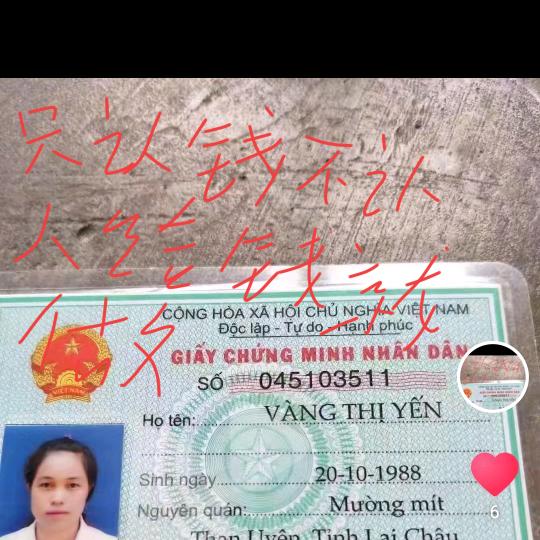 只认钱不认
人给钱就
什么
CỘNG HÒA XÃ HỘI CHỦ NGHĨA VIỆT NAM
Độc lập - Tự do - Hạnh phúc
GIẤY CHỨNG MINH NHÂN DÂN
SỐ 045103511
VIỆT NAM
Họ tên: VÀNG THỊ YẾN
Sinh ngày 20-10-1988
Nguyên quán: Mường mít
Than Uyên, Tỉnh Lai Châu
6